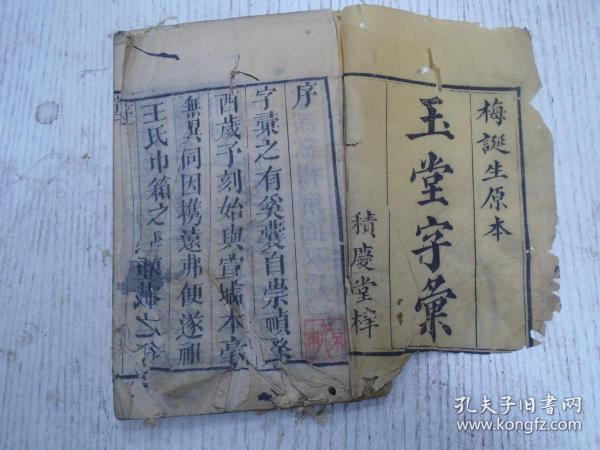 梅誕生原本
玉堂字彙
積慶堂梓
序
字彙之有奚囊自崇禎癸
酉歲予刻始與宣城本毫
無異同因携遠弗便遂袖
王氏巾箱之
載之
孔夫子旧书网
www.kongfz.com